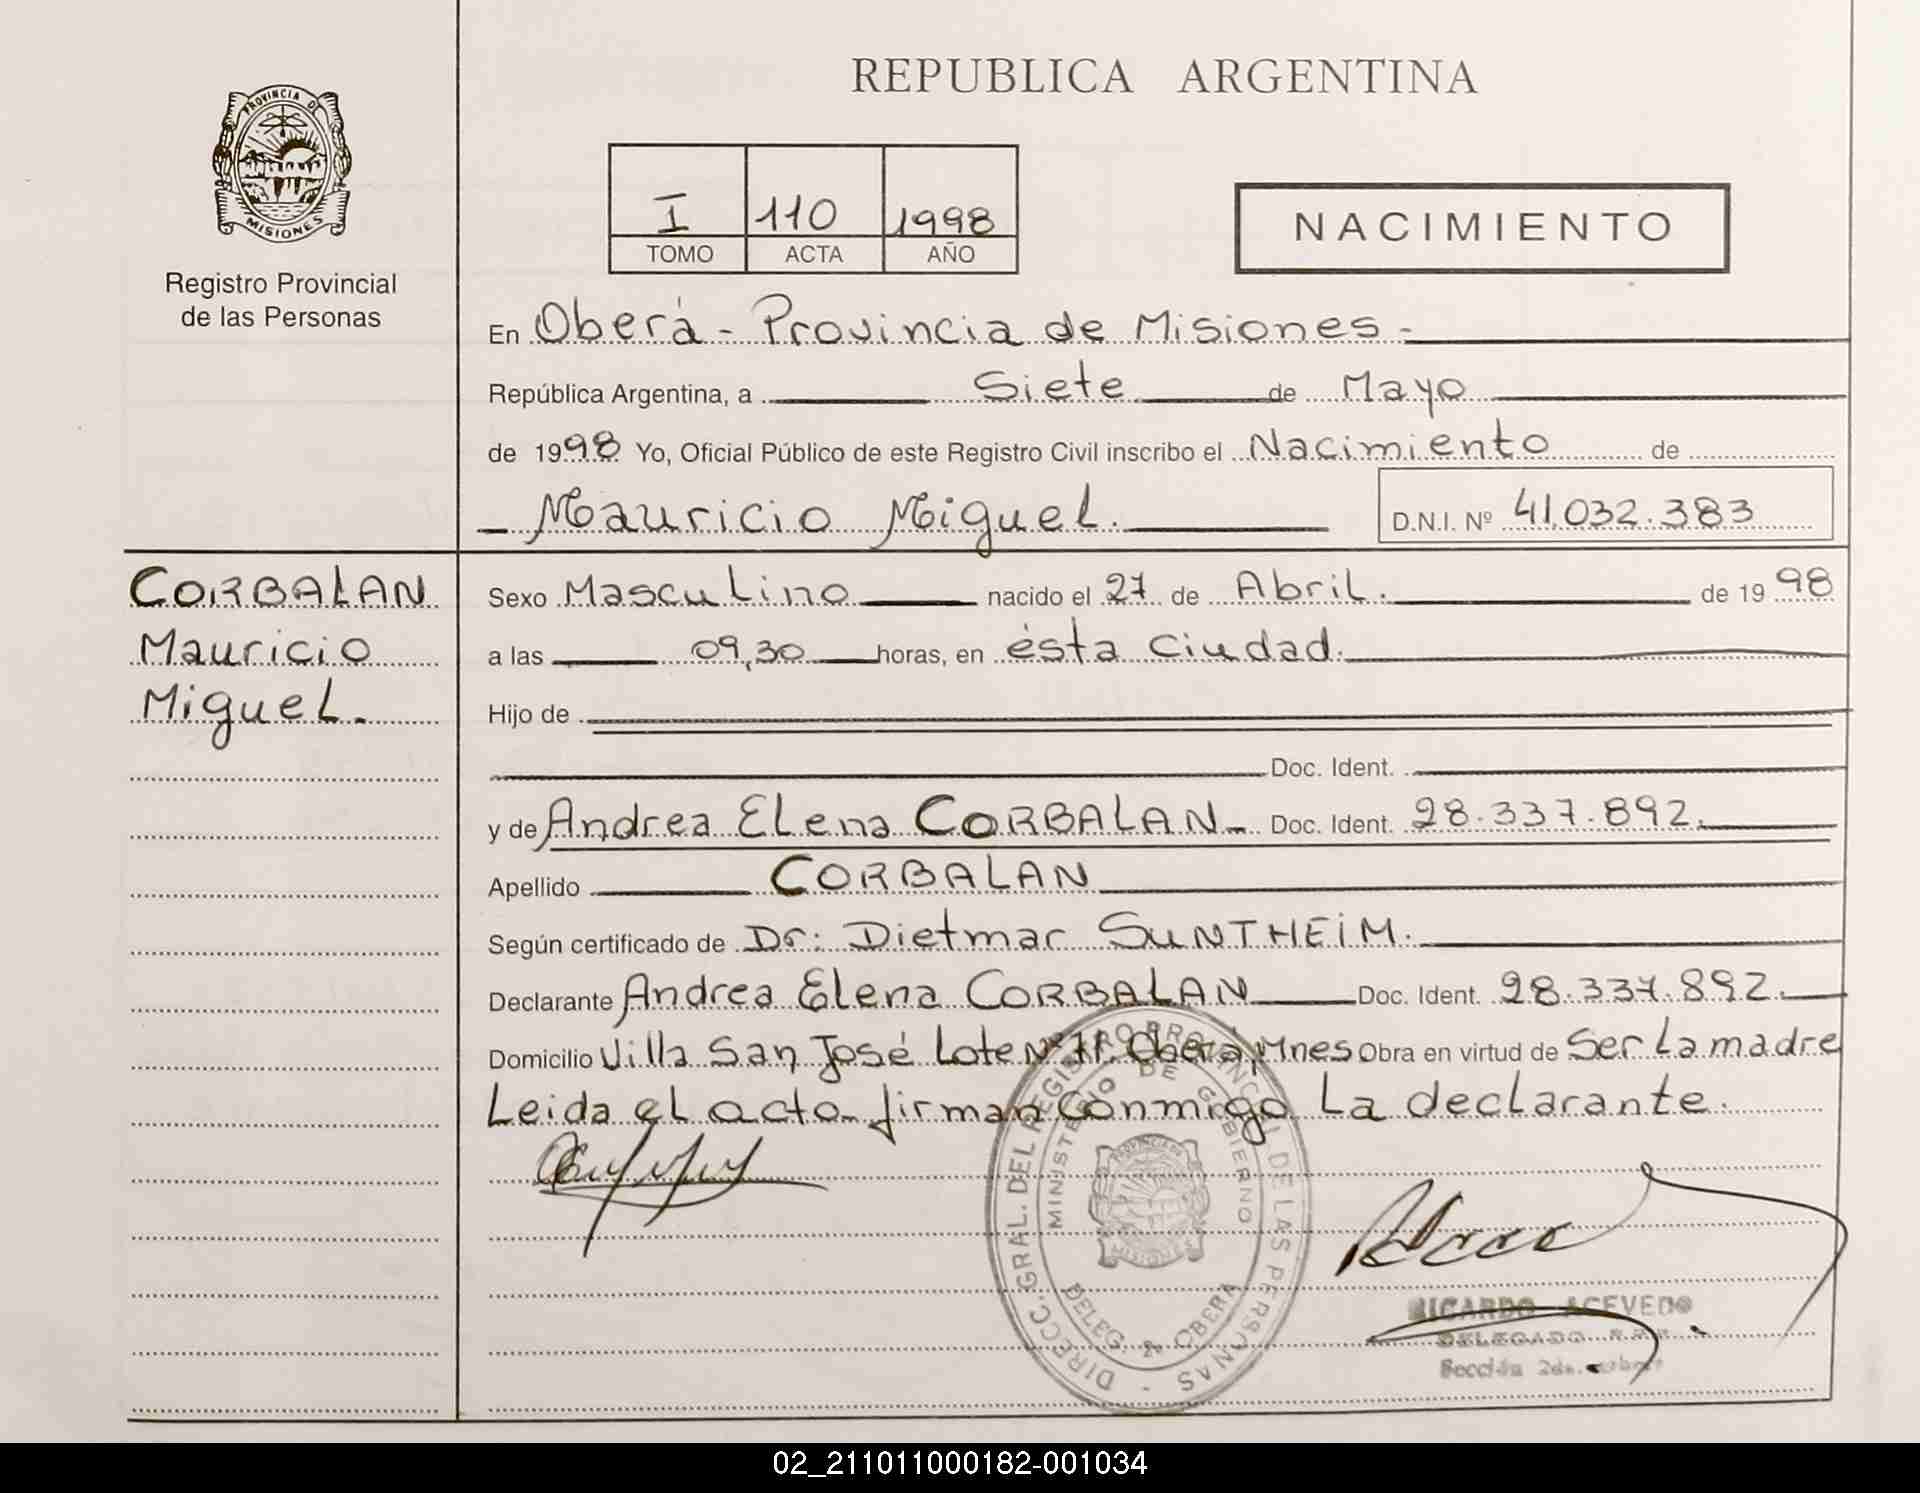 REPUBLICA ARGENTINA
PROVINCIA DE
MISIONES
Registro Provincial
de las Personas
I 110 1998
TOMO ACTA AÑO
NACIMIENTO
En Oberá - Provincia de Misiones -
República Argentina, a Siete de Mayo
de 1998 Yo, Oficial Público de este Registro Civil inscribo el Nacimiento de
Mauricio Miguel.
D.N.I. Nº 41.032.383
CORBALAN
Mauricio
Miguel.
Sexo Masculino nacido el 27 de Abril. de 1998
a las 09,30 horas, en ésta Ciudad.
Hijo de
Doc. Ident.
y de Andrea Elena CORBALAN - Doc. Ident. 28.337.892.
Apellido CORBALAN
Según certificado de Dr: Dietmar SUNTHEIM.
Declarante Andrea Elena CORBALAN Doc. Ident. 28.337.892.
Domicilio Villa San José Lote Nº Oberá, Mnes Obra en virtud de Ser La madre
Leida el acto firman conmigo La declarante.
DIRECC. GRAL. DEL REGISTRO PROVINCIAL DE LAS PERSONAS
MINISTERIO DE GOBIERNO
PROVINCIA DE
MISIONES
DELEG. 2ª OBERA
RICARDO ACEVEDO
DELEGADO R.P.P.
Sección 2da.
02_211011000182-001034